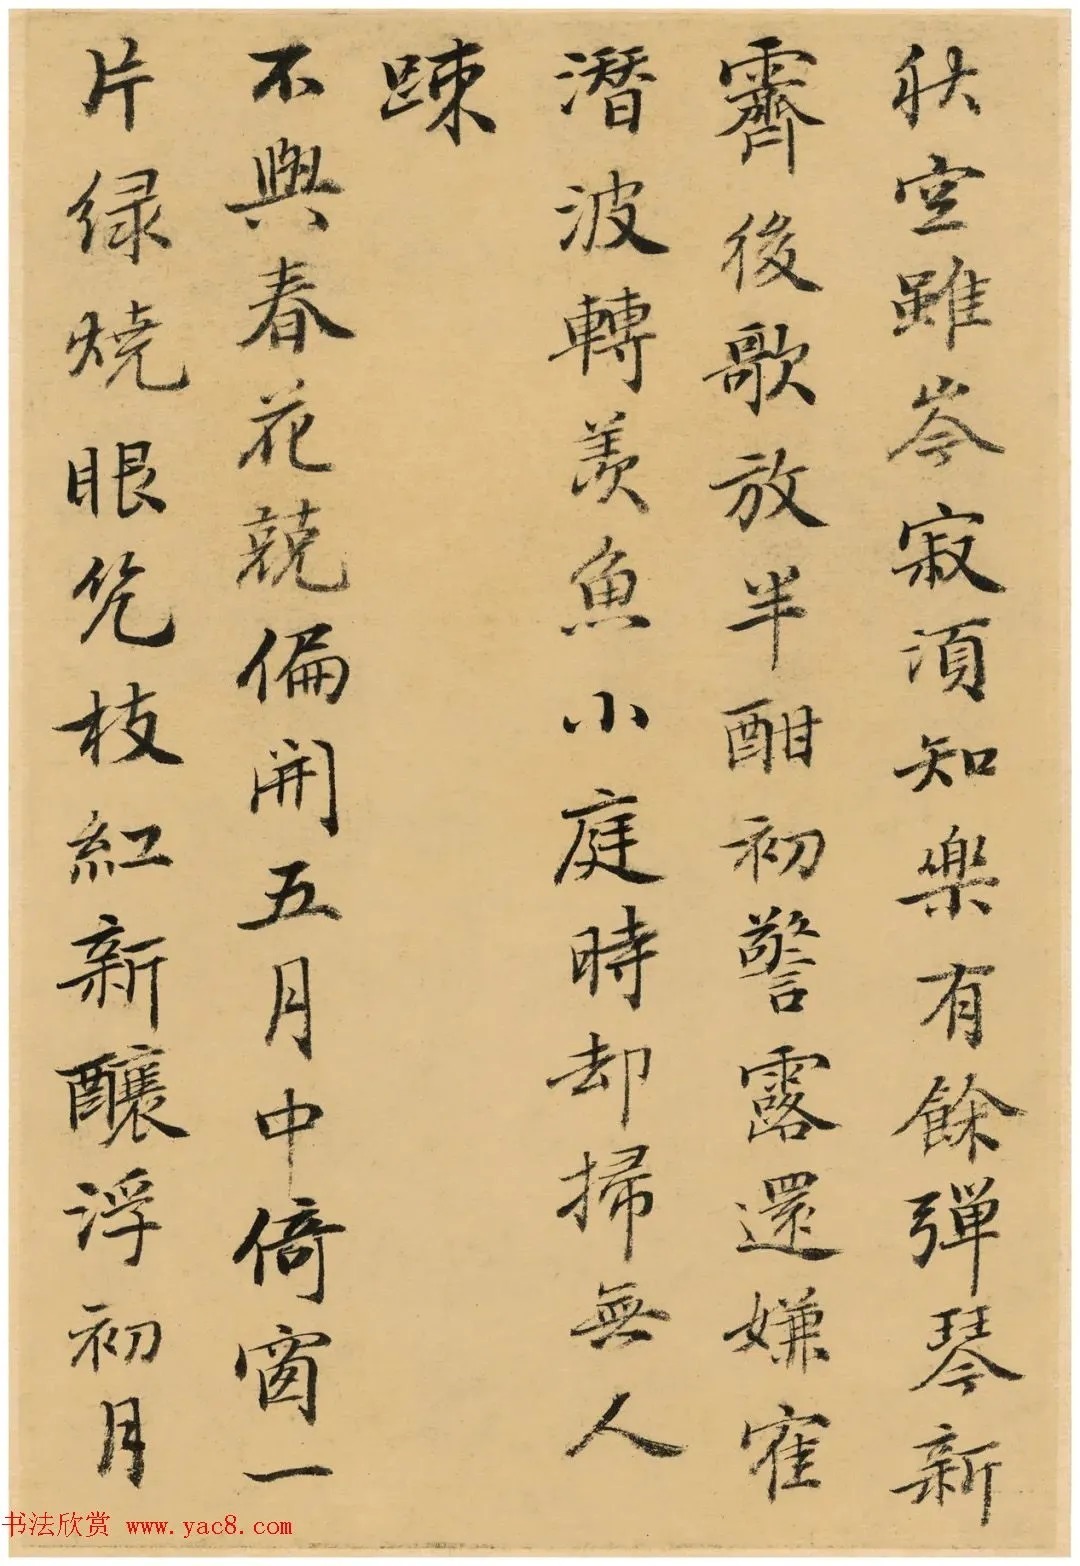 秋空雖岑寂須知樂有餘彈琴新
霽後歌放半酣初警露還嫌寉
潛波轉羨魚小庭時却掃無人
踈
不與春花競偏開五月中倚窗一
片绿燒眼凭枝紅新釀浮初月
书法欣赏 www.yac8.com